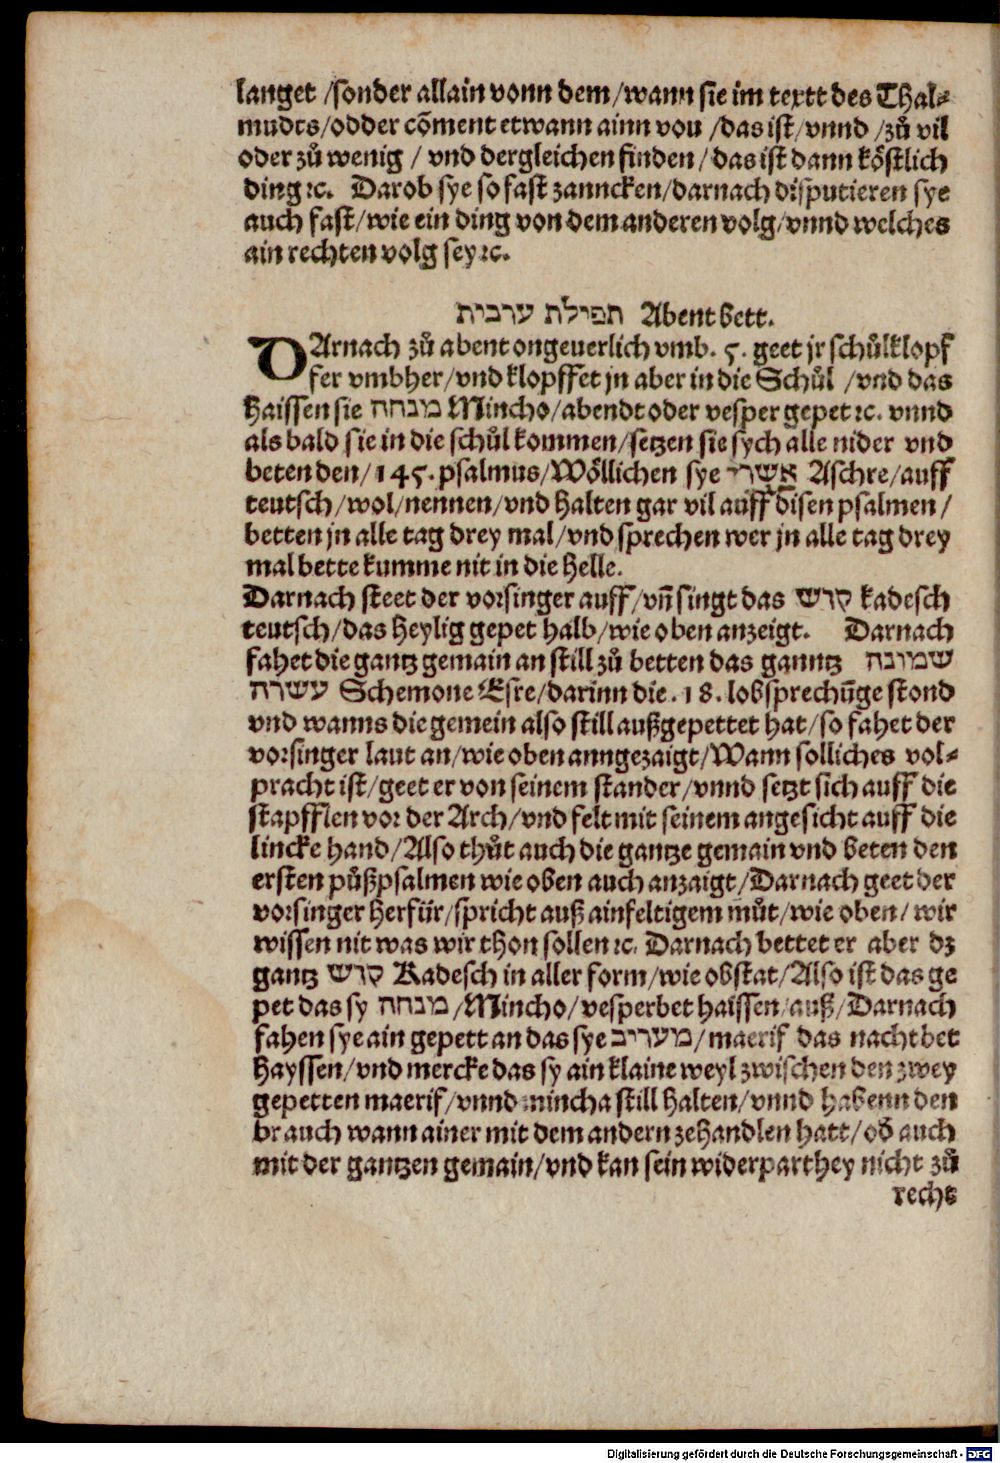 langet /sonder allain vonn dem/wann sie im textt des Thal⸗
mudes/odder cõment etwann ainn vou /das ist/vnnd /zů vil
oder zů wenig / vnd dergleichen finden/das ist dann köstlich
ding ꝛc. Darob sye so fast zanncken/darnach disputieren sye
auch fast/wie ein ding von dem anderen volg/vnnd welches
ain rechten volg sey ꝛc.
תפילת ערבית Abent bett.
DArnach zů abent ongeuerlich vmb. 5. geet jr schůlklopf
fer vmbher/vnd klopffet jn aber in die Schůl /vnd das
haissen sie מנחה Mincho/abendt oder vesper gepet ꝛc. vnnd
als bald sie in die schůl kommen/setzen sie sych alle nider vnd
beten den/145.psalmus/Wöllichen sye אַשְרֵי Aschre/auff
teutsch/wol/nennen/vnd halten gar vil auff disen psalmen/
betten jn alle tag drey mal/vnd sprechen wer jn alle tag drey
mal bette kumme nit in die helle.
Darnach steet der vorsinger auff/vñ singt das קדש kadesch
teutsch/das heylig gepet halb/wie oben anzeigt. Darnach
fahet die gantz gemain an still zů betten das ganntz שמונה
עשרה Schemone Esre/darinn die.18.lobsprechũge stond
vnd wanns die gemein also still außgepettet hat/so fahet der
vorsinger laut an/wie oben anngezaigt/Wann solliches vol⸗
pracht ist/geet er von seinem stander/vnnd setzt sich auff die
stapfflen vor der Arch/vnd felt mit seinem angesicht auff die
lincke hand/Also thůt auch die gantze gemain vnd beten den
ersten půßpsalmen wie oben auch anzaigt/Darnach geet der
vorsinger herfür/spricht auß ainfeltigem můt/wie oben/wir
wissen nit was wir thon sollen ꝛc. Darnach bettet er aber dz
gantz קדש Kadesch in aller form/wie obstat/Also ist das ge
pet das sy מנחה/Mincho/vesperbet haissen/auß/Darnach
fahen sye ain gepett an das sye מעריב/maerif das nacht bet
hayssen/vnd mercke das sy ain klaine weyl zwischen den zwey
gepetten maerif/vnnd mincha still halten/vnnd habenn den
brauch wann ainer mit dem andern zehandlen hatt/oď auch
mit der gantzen gemain/vnd kan sein widerparthey nicht zů
recht
Digitalisierung gefördert durch die Deutsche Forschungsgemeinschaft - DFG